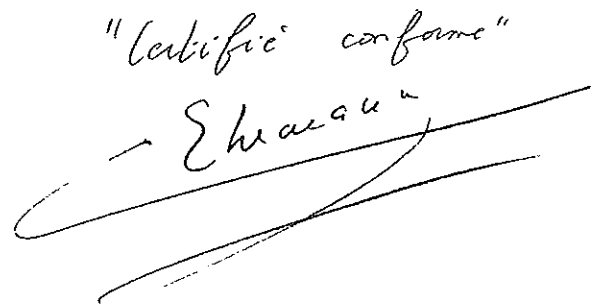 "Certifié conforme"